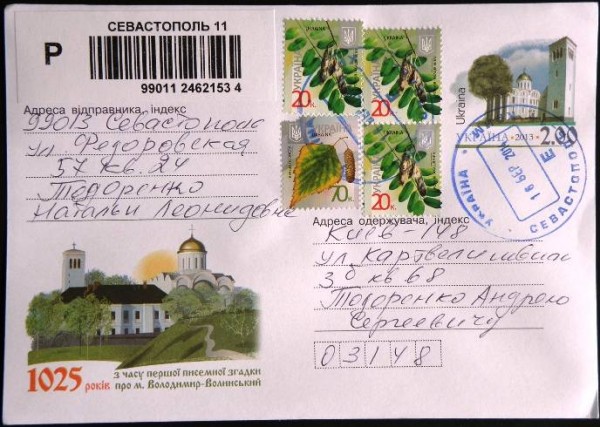 СЕВАСТОПОЛЬ 11
Р
99011 2462153 4
Адреса відправника, індекс
99013 Севастополь
ул. Федоровская
57 кв. 24
Тодоренко
Натальи Леонидовне
УКРАЇНА
20к.
УКРАЇНА
20к.
УКРАЇНА
70к.
УКРАЇНА
20к.
Ukraina
УКРАЇНА • 2013
2.00
УКРАЇНА
СЕВАСТОПОЛЬ
Адреса одержувача, індекс
Киев-148
ул. Картвелишвили
3б кв 68
Тодоренко Андрею
Сергеевичу
03148
1025 років
з часу першої писемної згадки
про м. Володимир-Волинський